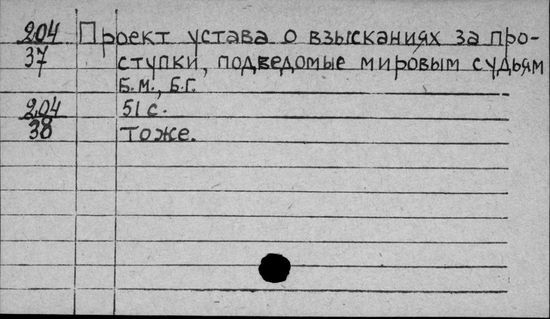 204 Проект устава о взысканиях за про-
37 ступки, подведомые мировым судьям
Б.м., Б.г.
204 51 с.
38 Тоже.